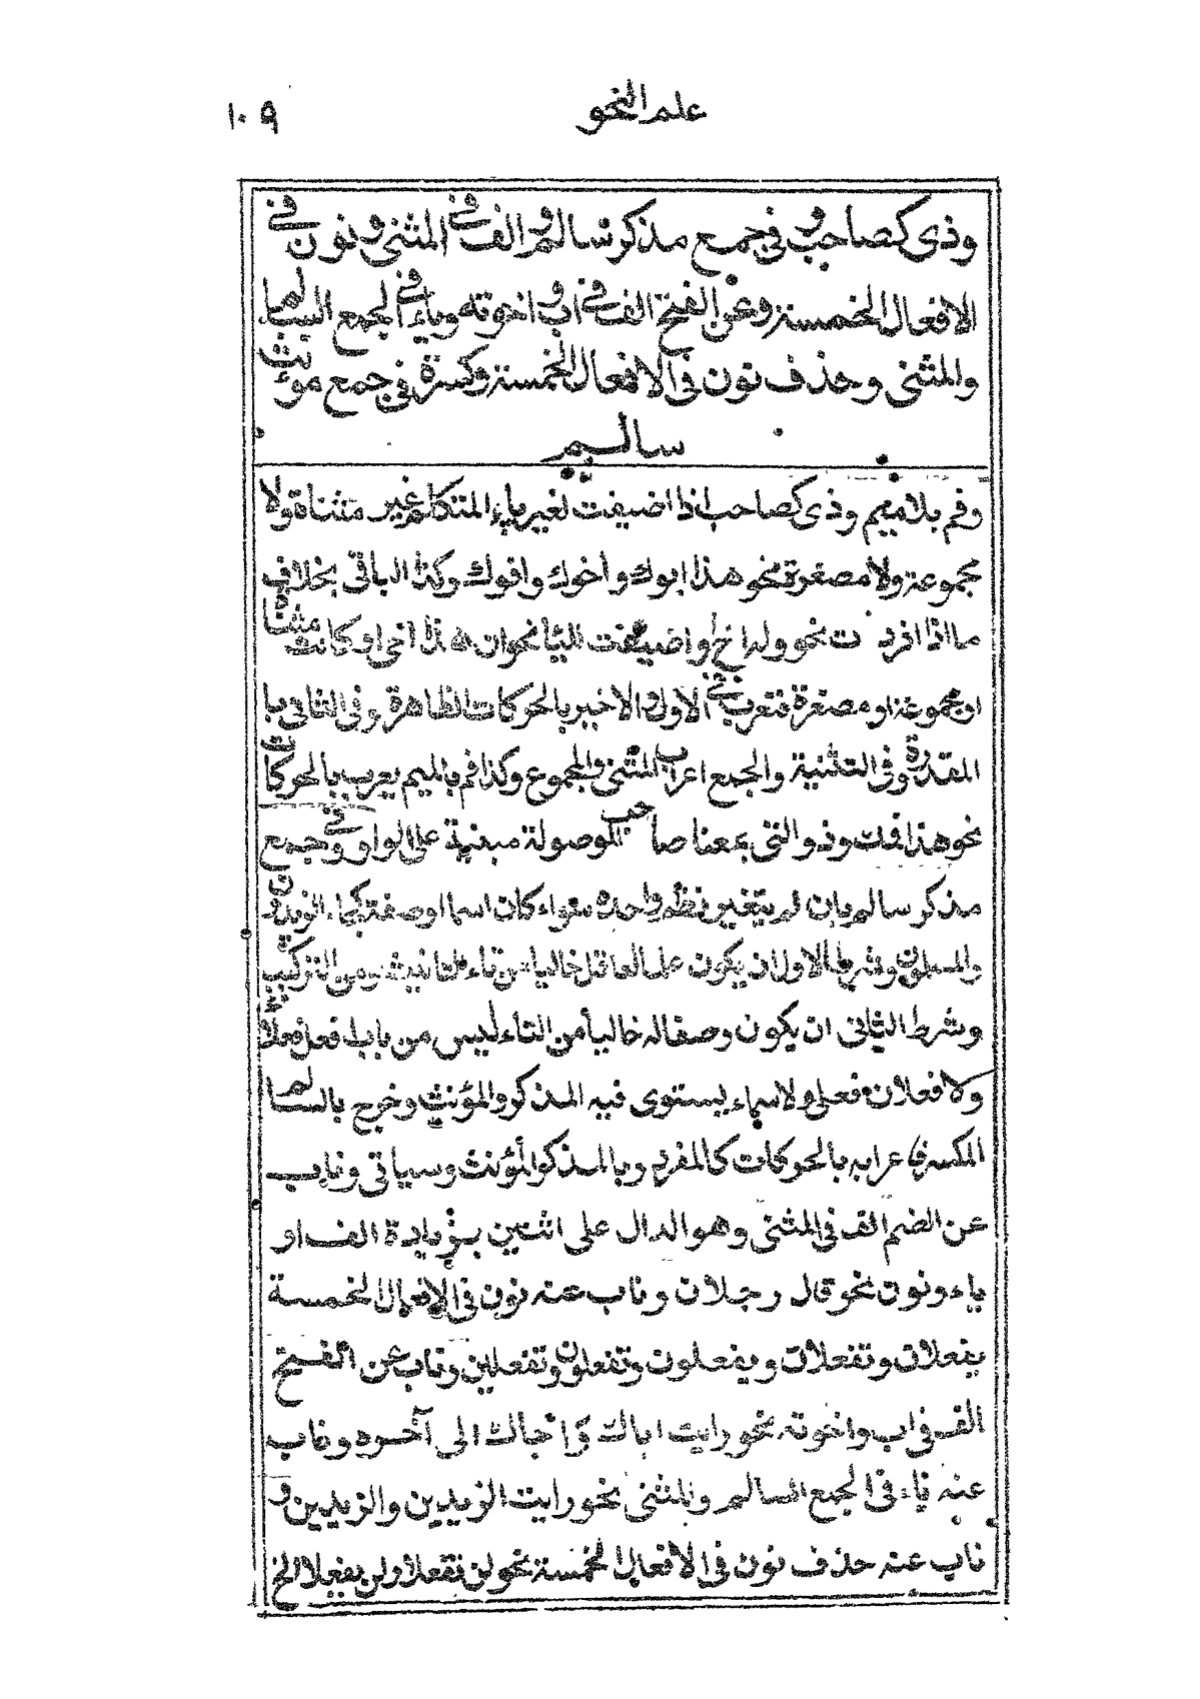 علم النحو
١٠٩
وذى كصاحب وفى جمع مذكر سالم والف فى المثنى ونون فى
الافعال الخمسة وعن الفتح الف فى اب واخوته وياء فى الجمع السالم
والمثنى وحذف نون فى الافعال الخمسة وكسرة فى جمع مؤنث
سالم
وفم بلا ميم وذى كصاحب اذا اضيفت لغير ياء المتكلم غير مثناة ولا
مجموعة ولا مصغرة نحو هذا ابوك واخوك وافوك وكذا الباقى بخلاف
ما اذا افردت نحو وله اخ او اضيفت لليا نحو ان هذا اخى او كانت مثناة
او مجموعة او مصغرة فتعرب فى الاول والاخير بالحركات الظاهرة وفى الثانى با
المقدرة وفى التثنية والجمع اعراب المثنى والمجموع وكذا فم بالميم يعرب بالحركات
نحو هذا فمك وذو التى بمعنا صاحب الموصولة مبنية على الواو وفى جمع
مذكر سالم بان لم يتغير نظم واحده سواء كان اسما او صفة كجاء الزيدون
والمسلمون وشرط الاول ان يكون علما لعاقل خاليا من تاء التانيث ومن التركيب
وشرط الثانى ان يكون وصفا له خاليا من التاء ليس من باب افعل فعلاء
ولا فعلان فعلى ولا سماء يستوى فيه المذكر والمؤنث وخرج بالسالم
المكسر فاعرابه بالحركات كالمفرد وبالمذكر المؤنث وسياتى وناب
عن الضم الف فى المثنى وهو الدال على اثنين بزيادة الف او
ياء ونون نحو قال رجلان وناب عنه نون فى الافعال الخمسة
يفعلان وتفعلان ويفعلون وتفعلون وتفعلين وناب عن الفتح
الف فى اب واخوته نحو رايت اباك واخاك الى آخره وناب
عنه ياء فى الجمع السالم والمثنى نحو رايت الزيدين والزيدين و
ناب عنه حذف نون فى الافعال الخمسة نحو لن تفعلا ولن يفعلا الخ